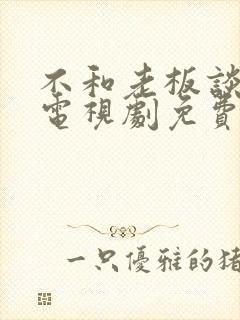 不和老板談
電視劇免費
一只優雅的猪